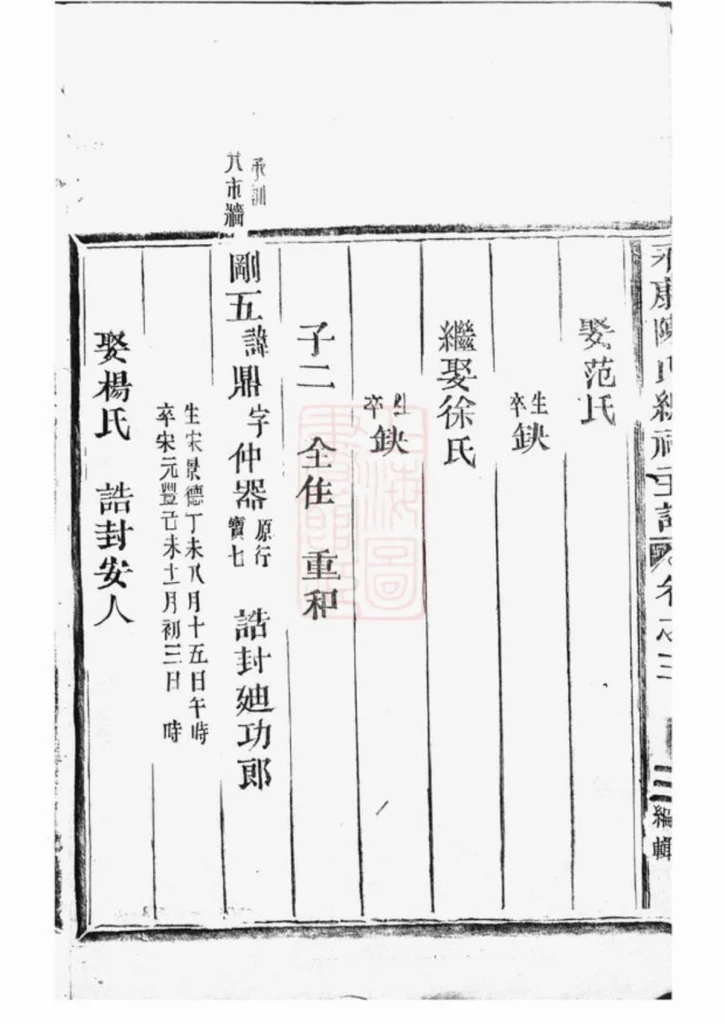 娶范氏
生
卒
缺
繼娶徐氏
生
卒
缺
子二 全佳 重和
承訓
剛五諱鼎字仲器原行寶七 誥封廸功郎
生宋景德丁未八月十五日午時
卒宋元豐己未十一月初三日 時
娶楊氏 誥封安人
之三
編輯